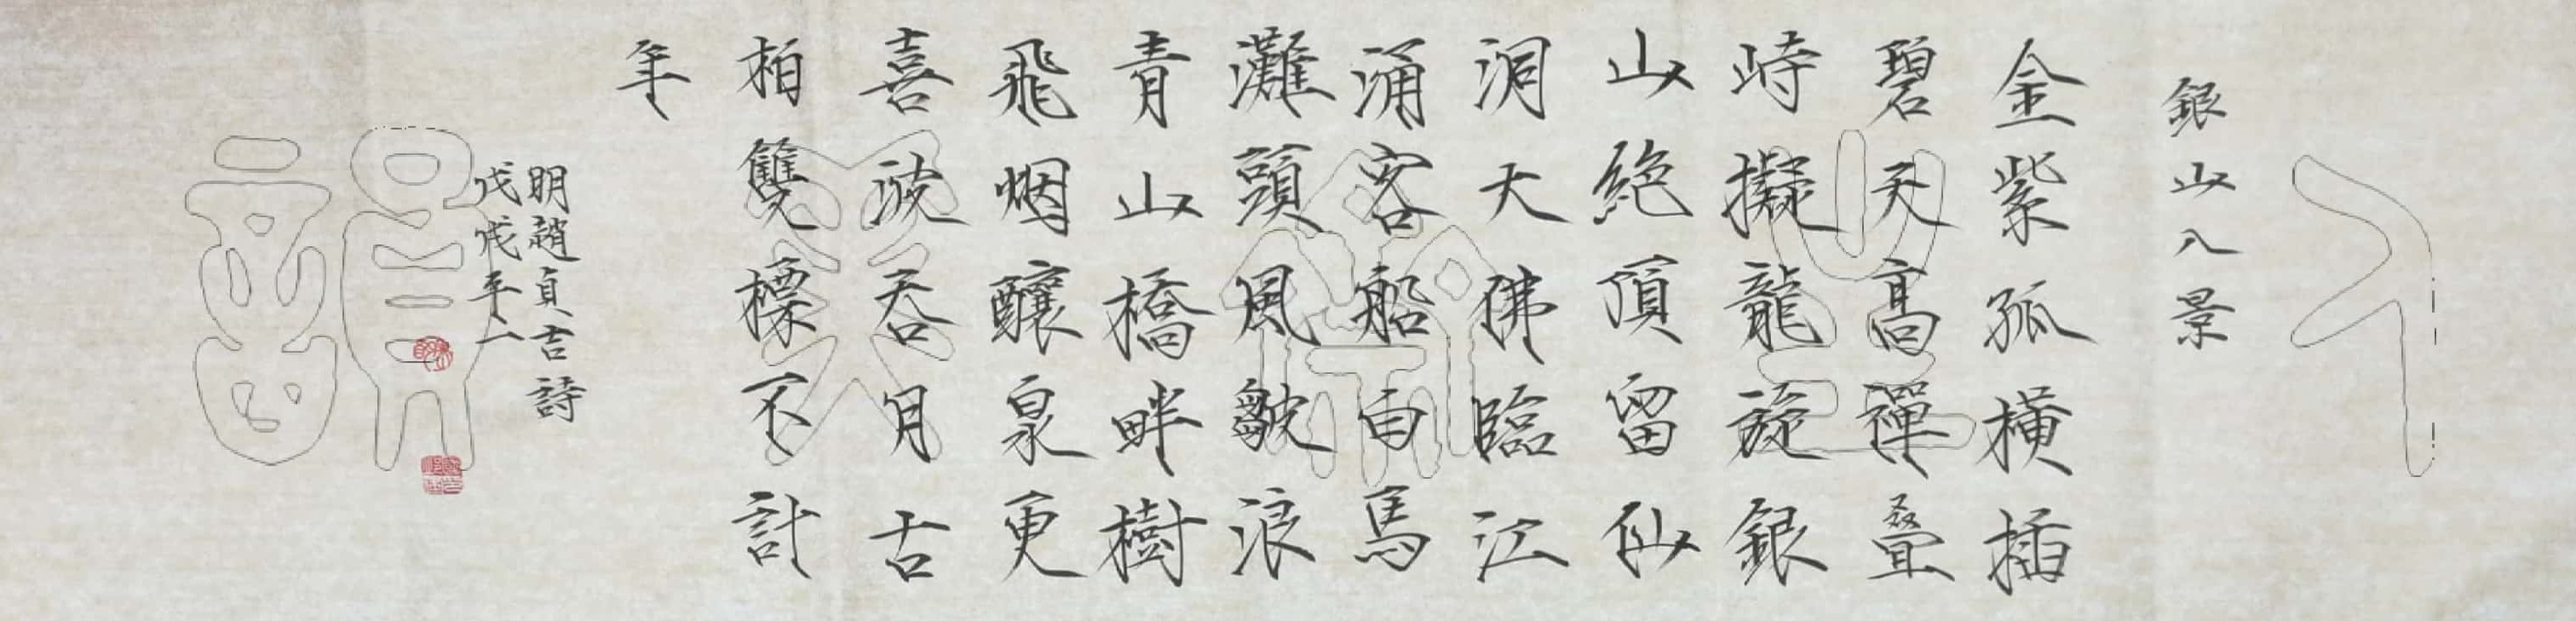 銀山八景
金紫孤橫插
碧天高禪疊
峙擬龍旋銀
山絕頂留仙
洞大佛臨江
涌客船白馬
灘頭風皺浪
青山橋畔樹
飛烟釀泉更
喜波吞月古
柏雙標不計
年
明趙貞吉詩
戊戌年一